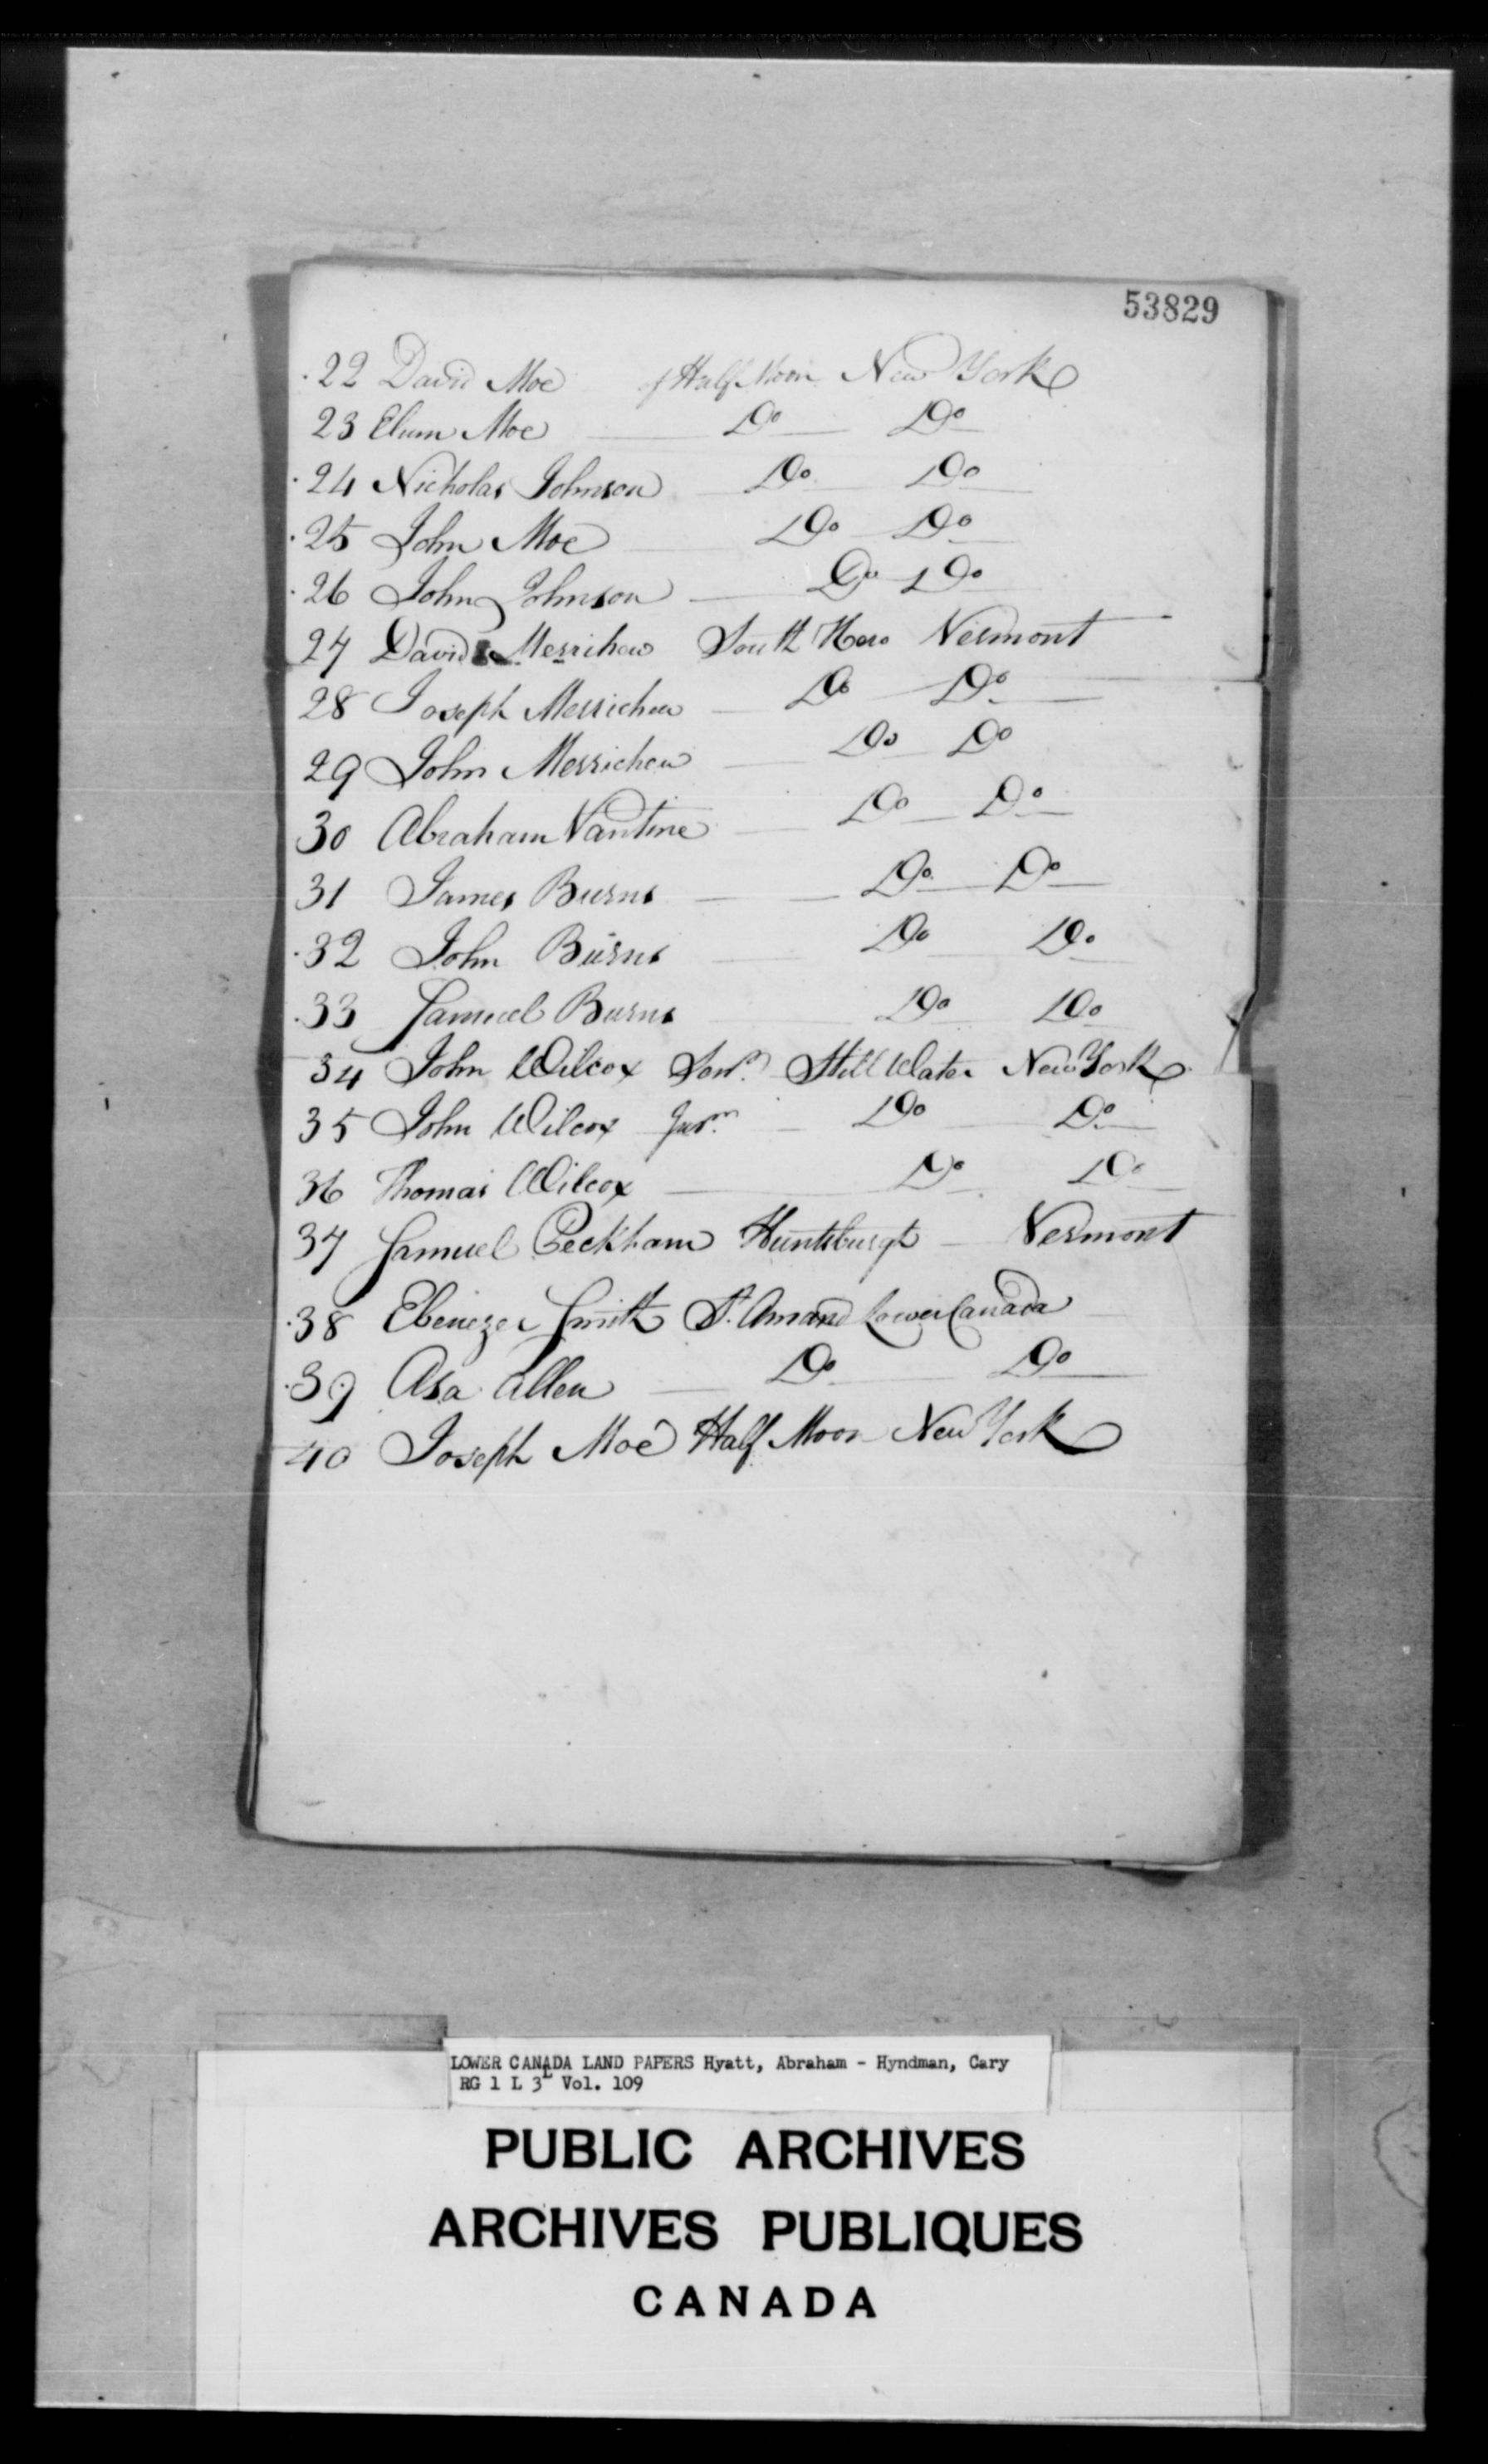 53829
22 David Moe of Half Moon New York
23 Elum Moe Do Do
24 Nicholas Johnson Do Do
25 John Moe Do Do
26 John Johnson Do Do
27 David Merrihew South Hero Vermont
28 Joseph Merrichew Do Do
29 John Merrichew Do Do
30 Abraham Vantine Do Do
31 James Burns Do Do
32 John Burns Do Do
33 Samuel Burns Do Do
34 John Wilcox Senr. Still Water New York
35 John Wilcox Junr. Do Do
36 Thomas Wilcox Do Do
37 Samuel Peckham Huntsburgh Vermont
38 Ebenezer Smith St. Amand Lower Canada
39 Asa Allen Do Do
40 Joseph Moe Half Moon New York
LOWER CANADA LAND PAPERS Hyatt, Abraham - Hyndman, Cary
RG 1 L 3L Vol. 109
PUBLIC ARCHIVES
ARCHIVES PUBLIQUES
CANADA